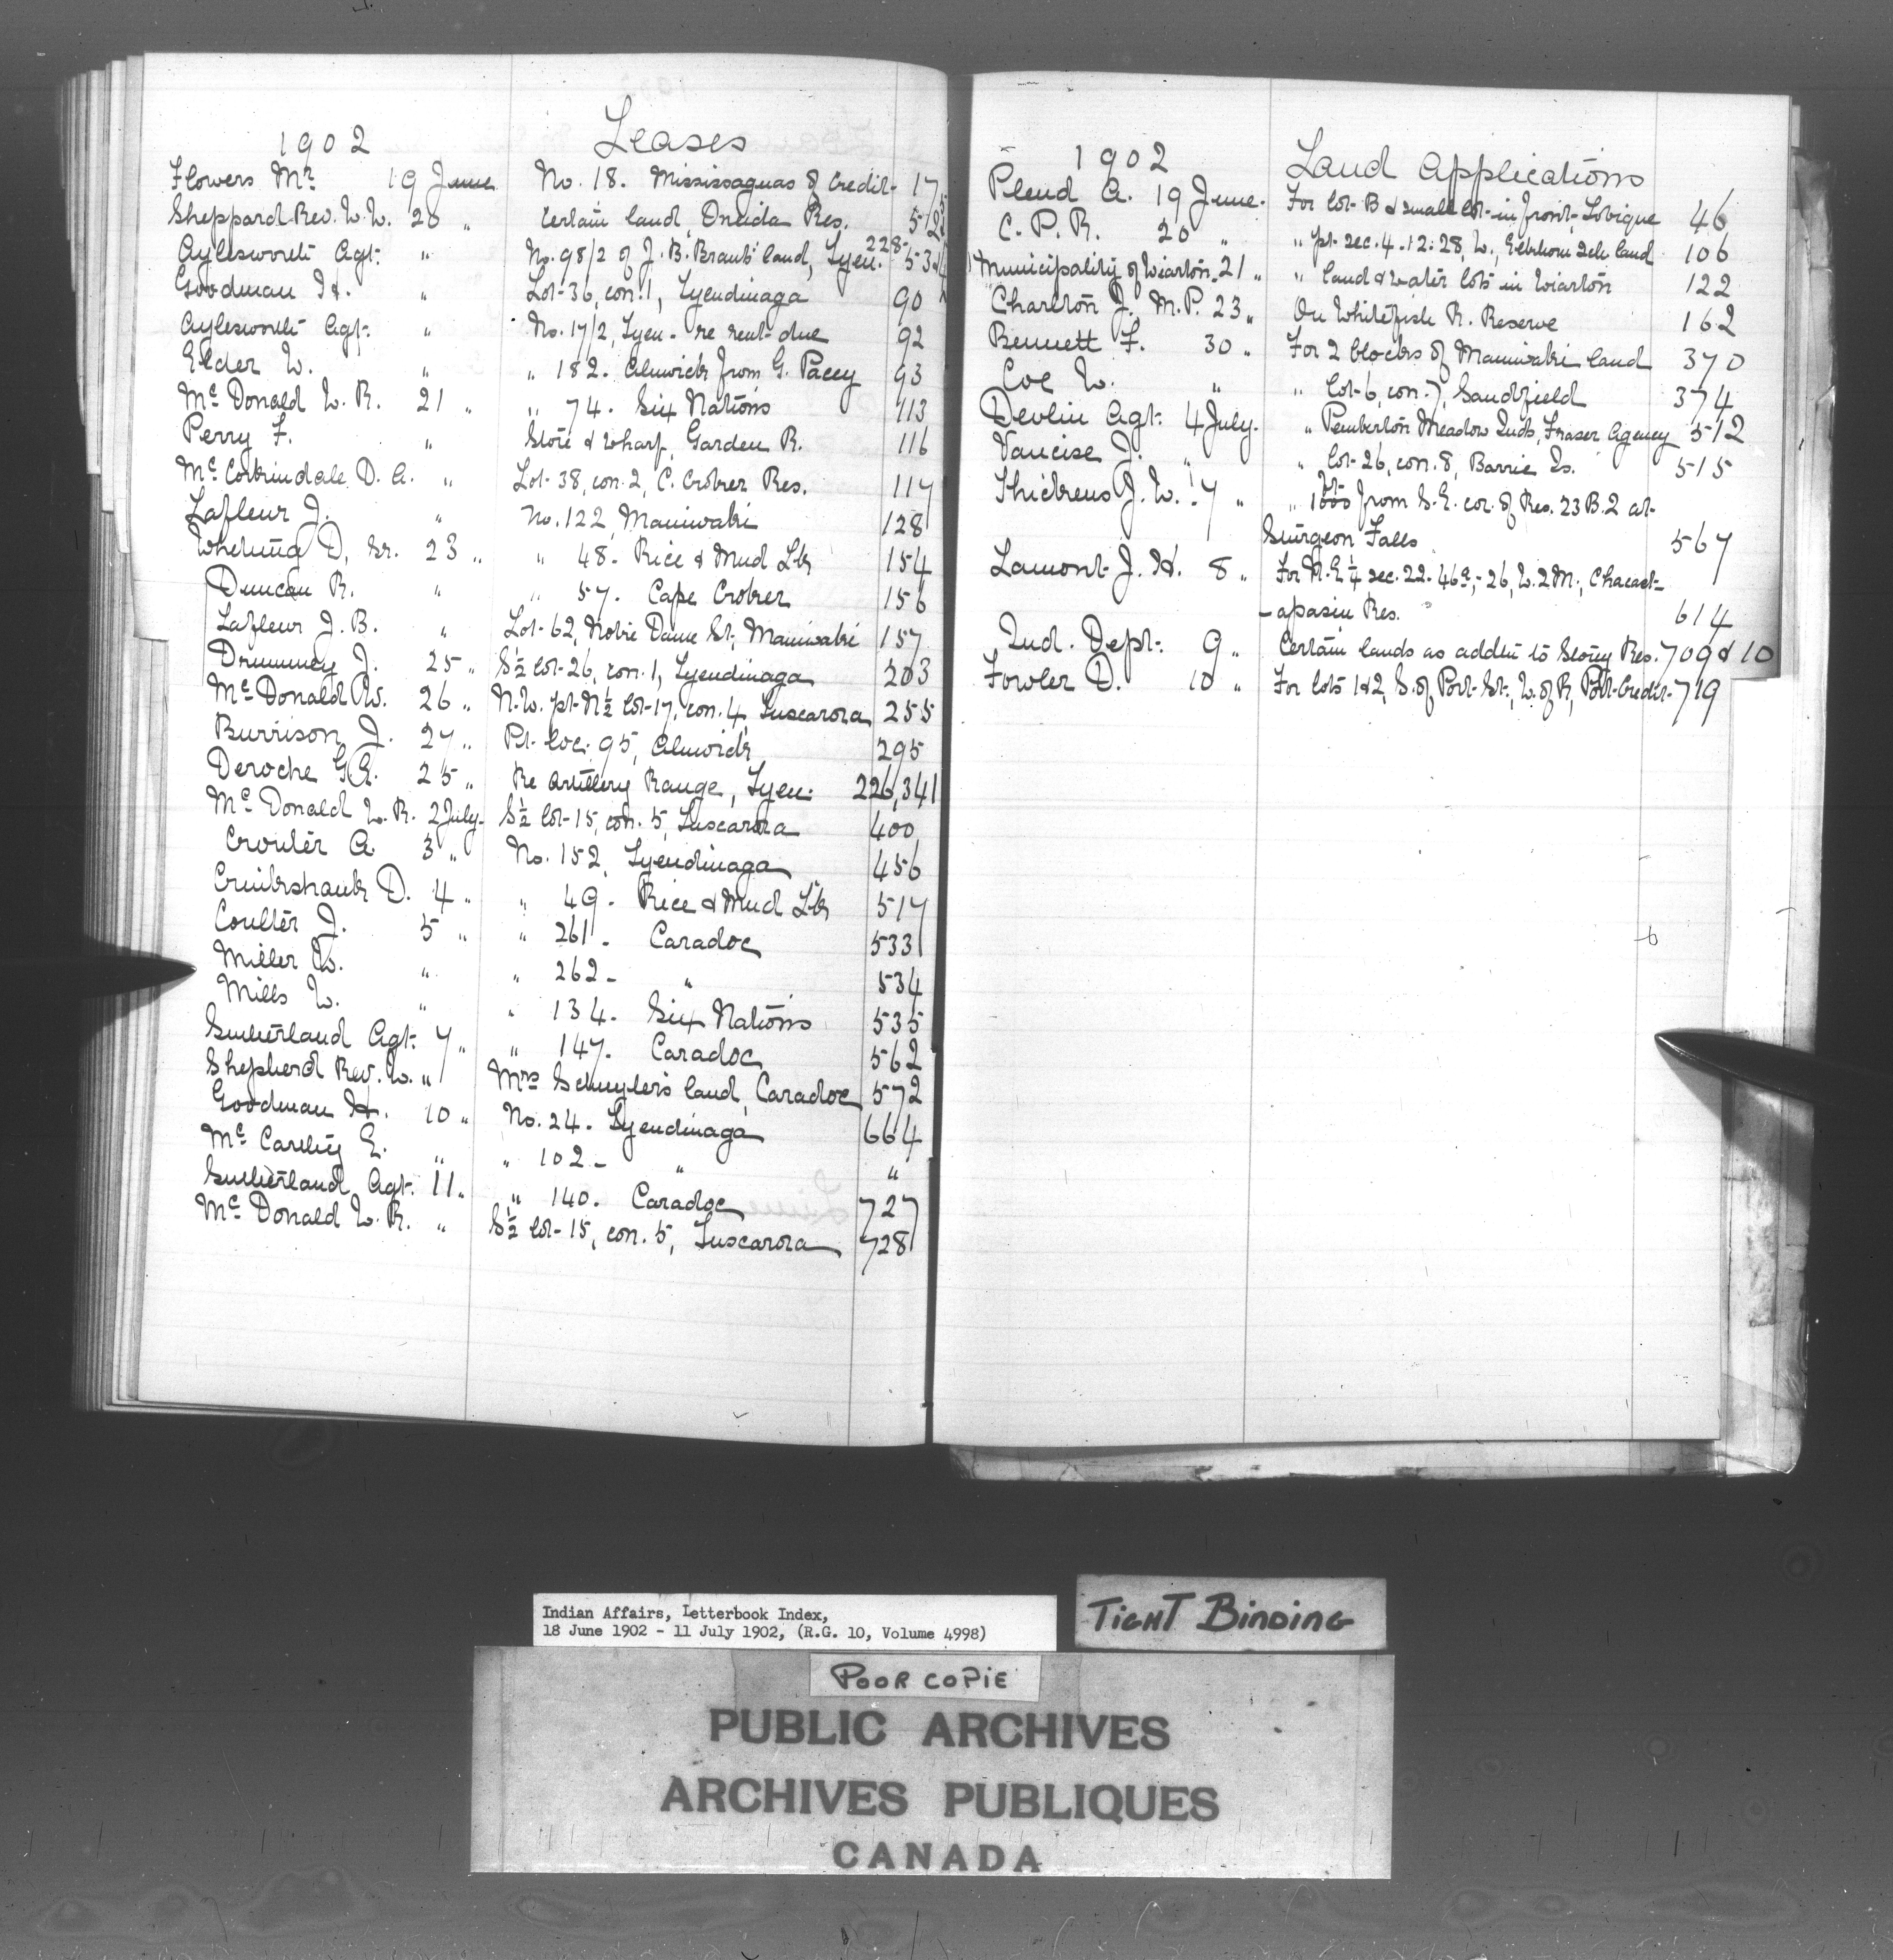 1902 Leases
Flowers Mr 19 June No. 18. Mississaguas of Credit 17
Sheppard Rev. W.W. 20 " Certain land, Oneida Res.
Aylesworth Agt. " No. 98/2 of J. B. Brant's land, Tyen. 228
Goodman H. " Lot 36, con. 1, Tyendinaga 90
Aylesworth Agt. " No. 17/2, Tyen. re rent due 92
Elder W. " " 182. Alnwick from G. Pacey 93
McDonald W. R. 21 " " 74. Six Nations 113
Perry F. " Store & wharf, Garden R. 116
McCorkindale D. A. " Lot 38, con. 2, C. Croker Res. 117
Lafleur J. " No. 122, Maniwaki 128
Whetung D, Sr. 23 " " 48. Rice & Mud Lks 154
Duncan R. " " 57. Cape Croker 156
Lafleur J. B. " Lot 62, Notre Dame St., Maniwaki 157
Drummey J. 25 " S½ lot 26, con. 1, Tyendinaga 203
McDonald W. 26 " N.W. pt N½ lot 17, con. 4, Tuscarora 255
Burrison J. 27 " Pt. loc. 95, Alnwick 295
Deroche G.E. 25 " Re Artillery Range, Tyen. 226,341
McDonald W. R. 2 July. S½ lot 15, con. 5, Tuscarora 400
Crouter A. 3 " No. 152, Tyendinaga 456
Cruikshank D. 4 " " 49. Rice & Mud Lks 517
Coulter J. 5 " " 261. Caradoc 533
Miller W. " " 262 - " 534
Mills W. " " 134. Six Nations 535
Sutherland Agt. 7 " " 147. Caradoc 562
Shepherd Rev. W. " Mrs Schuyler's land, Caradoc 572
Goodman H. 10 " No. 24. Tyendinaga 664
McCarthy E. " " 102 - " "
Sutherland Agt. 11 " " 140. Caradoc 727
McDonald W. R. " S½ lot 15, con. 5, Tuscarora 728
1902 Land Applications
Plend A. 19 June. For lot B & small lot in front, Tobique 46
C. P. R. 20 " " pt. sec. 4.12.28, W., Elkhorn Sch. land 106
Municipality of Wiarton. 21 " " land & water lots in Wiarton 122
Charlton J., M.P. 23 " On Whitefish R. Reserve 162
Bennett F. 30 " For 2 blocks of Maniwaki land 370
Coe W. " " lot 6, con. 7, Sandfield 374
Devlin Agt. 4 July. " Pemberton Meadow Inds, Fraser Agency 512
Vancise J. " " lot 26, con. 8, Barrie Is. 515
Thickens J. W. 7 " " 1000 ft. from S.E. cor. of Res. 23 B. 2 at
Sturgeon Falls 567
Lamont J. H. 8 " For N.E ¼ sec. 22. 46a - 26, W. 2 M., Chacast
-apasin Res. 614
Ind. Dept. 9 " Certain lands as addtn to Stony Res. 709 & 10
Fowler D. 10 " For lots 1&2, S. of Port St., W. of R, Port Credit 719
Indian Affairs, Letterbook Index,
18 June 1902 - 11 July 1902, (R.G. 10, Volume 4998)
TIGHT BINDING
POOR COPIE
PUBLIC ARCHIVES
ARCHIVES PUBLIQUES
CANADA